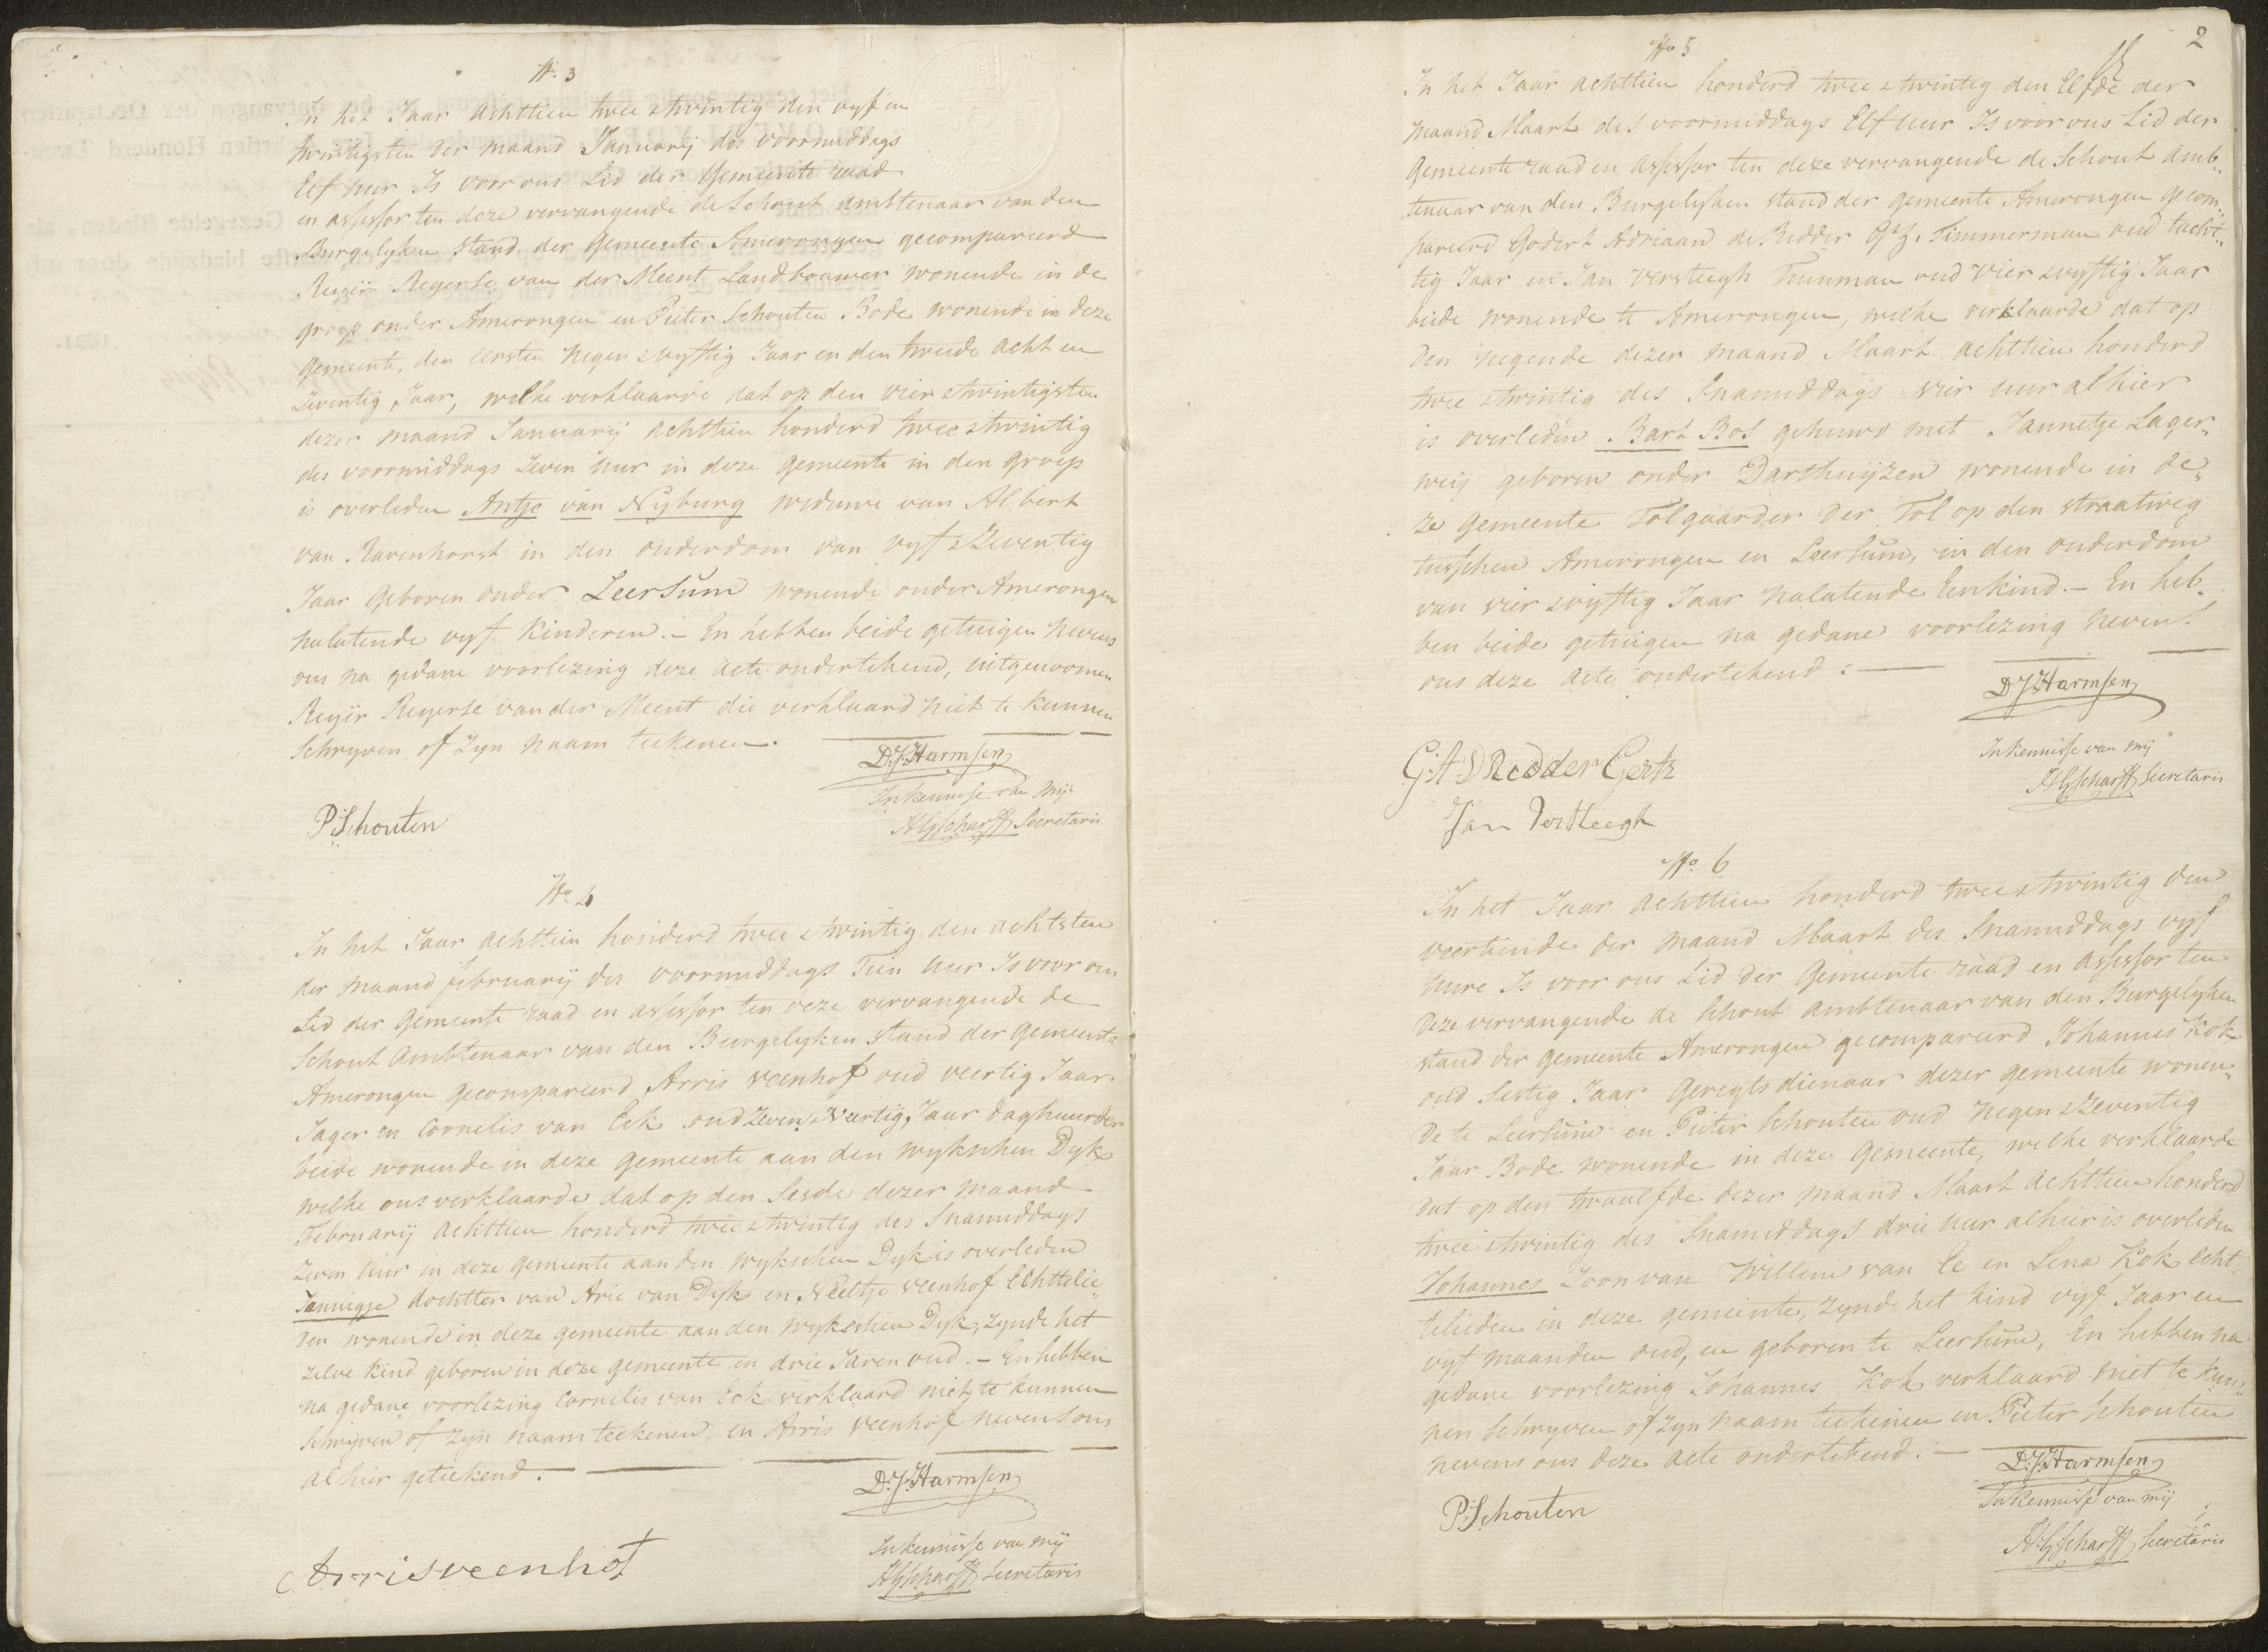 No. 3
In het Jaar achttien twee & twintig den vyf en
twintigsten der maand Januarij des voormiddags
Elf uur Is voor ons Lid der Gemeente raad
en assessor ten deze vervangende de Schout ambtenaar van den
Burgelyken Stand der Gemeente Amerongen gecompareerd
Reyer Reyerse van der Meent Landbouwer wonende in de
groep onder Amerongen en Pieter Schouten Bode wonende in deze
gemeente, den eersten negen & vyftig Jaar en den tweede acht en
zeventig Jaar, welke verklaarde dat op den vier & twintigsten
dezer maand Januarij achttien honderd twee & twintig
des voormiddags zeven uur in deze gemeente in den groep
is overleden Antje van Nyburg weduwe van Albert
van Ravenhorst in den ouderdom van vyf & zeventig
Jaar Geboren onder Leersum wonende onder Amerongen
nalatende vyf Kinderen. – En hebben beide getuigen nevens
ons na gedane voorlezing deze acte ondertekend, uitgenoomen
Reyer Reyerse van der Meent die verklaard niet te kunnen
Schryven of Zyn naam teekenen.
D.J. Harmsen
In kennisse van mij
HG Scharff Secretaris
P. Schouten
No. 4
In het Jaar achttien honderd twee & twintig den achtsten
der maand februarij des voormiddags Tien uur Is voor ons
Lid der Gemeente raad en assessor ten deze vervangende de
Schout Ambtenaar van den Burgelyken Stand der Gemeente
Amerongen gecompareerd Arris Veenhof oud veertig Jaar
Jager en Cornelis van Eck oud zeven & Veertig Jaar daghuurder
beide wonende in deze gemeente aan den wykschen Dyk
welke ons verklaarde dat op den Sesde dezer maand
Februarij achttien honderd twee & twintig des Snamiddags
zeven uur in deze gemeente aan den wykschen Dyk is overleden
Jannigje dochtter van Arie van Dyk en Neeltje Veenhof Echttelie„
den wonende in deze gemeente aan den wykschen Dyk, zynde het
zelve kind geboren in deze gemeente en drie Jaren oud. – En hebben
na gedane voorlezing Cornelis van Eck verklaard niet te kunnen
Schrijven of zyn naam teekenen, en Arris Veenhof nevens ons
alhier geteekend. –
D.J. Harmsen
In kennisse van mij
HG Scharff Secretaris
Arris veenhof
2
No. 5
In het Jaar achttien honderd twee & twintig den Elfde der
maand Maart des voormiddags Elf uur Is voor ons Lid der
Gemeente raad en assessor ten deze vervangende de Schout amb„
tenaar van den Burgelyken Stand der gemeente Amerongen gecom„
pareerd Godert Adriaan de Ridder Gz. Timmerman oud tacht„
tig Jaar en Jan Versteegh Tuinman oud vier & vyftig Jaar
beide wonende te Amerongen, welke verklaarde dat op
den negende dezer maand Maart achttien honderd
twee & twintig des Snamiddags vier uur alhier
is overleden Bart Bos gehuwd met Jannetje Lager„
weij geboren onder Darthuijzen wonende in de„
ze gemeente Tolgaarder der Tol op den straatweg
tusschen Amerongen en Leersum, in den ouderdom
van vier & vyftig Jaar nalatende Een kind. – En heb„
ben beide getuigen na gedane voorlezing nevens
ons deze acte ondertekend: –
D.J. Harmsen
In kennisse van mij
HG Scharff Secretaris
G:A: D Redder Gertz
Jan Versteegh
No. 6
In het Jaar achttien honderd twee & twintig den
veertiende der maand Maart des Snamiddags vyf
uure Is voor ons Lid der Gemeente raad en assessor ten
deze vervangende de Schout ambtenaar van den Burgelyken
stand der gemeente Amerongen gecompareerd Johannes Kok
oud Sestig Jaar Geregts dienaar dezer gemeente wonen„
de te Leersum en Pieter Schouten oud negen & zeventig
Jaar Bode wonende in deze Gemeente, welke verklaarde
dat op den twaalfde dezer maand Maart achttien honderd
twee & twintig des Snamiddags drie uur alhier is overleden
Johannes Zoon van Willem van Ee en Lena Kok echt„
telieden in deze gemeente, zynde het kind vyf Jaar en
vyf maanden oud, en geboren te Leersum, En hebben na
gedane voorlezing Johannes Kok verklaard niet te kun„
nen Schryven of zyn naam teekenen en Pieter Schouten
nevens ons deze acte ondertekend. –
D.J. Harmsen
In kennisse van mij
HG Scharff Secretaris
P. Schouten